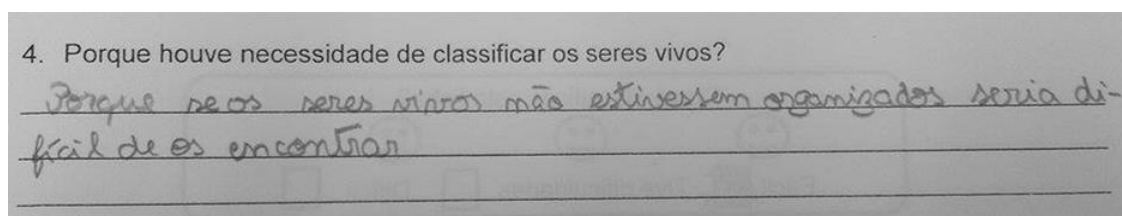 4. Porque houve necessidade de classificar os seres vivos?
Porque se os seres vivos não estivessem organizados seria di-
fícil de os encontrar